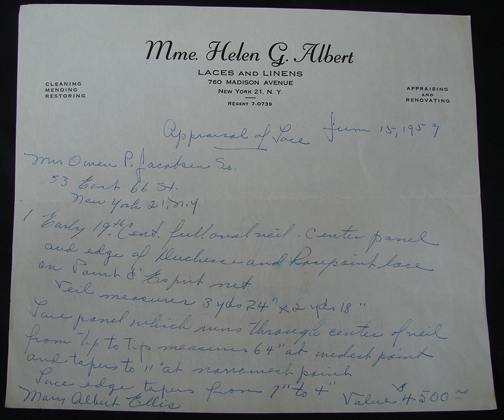 Mme. Helen G. Albert
LACES AND LINENS
760 MADISON AVENUE
NEW YORK 21, N. Y.
REGENT 7-0739
CLEANING
MENDING
RESTORING
APPRAISING
AND
RENOVATING
Appraisal of Lace June 15, 1959
Mrs Owen P. Jacobsen Sr.
53 East 66 St.
New York 21 N.Y.
1 Early 19th Cent. full oval veil. Center panel
and edge of Duchesse and Rosepoint lace
on Point d'Esprit net.
Veil measures 3 yds 24" x 2 yds 18"
Lace panel which runs through center of veil
from tip to tip measures 64" at widest point
and tapers to 11" at narrowest point
Lace edge tapers from 7" to 4"
Mary Albert Ellis Value $4500.00